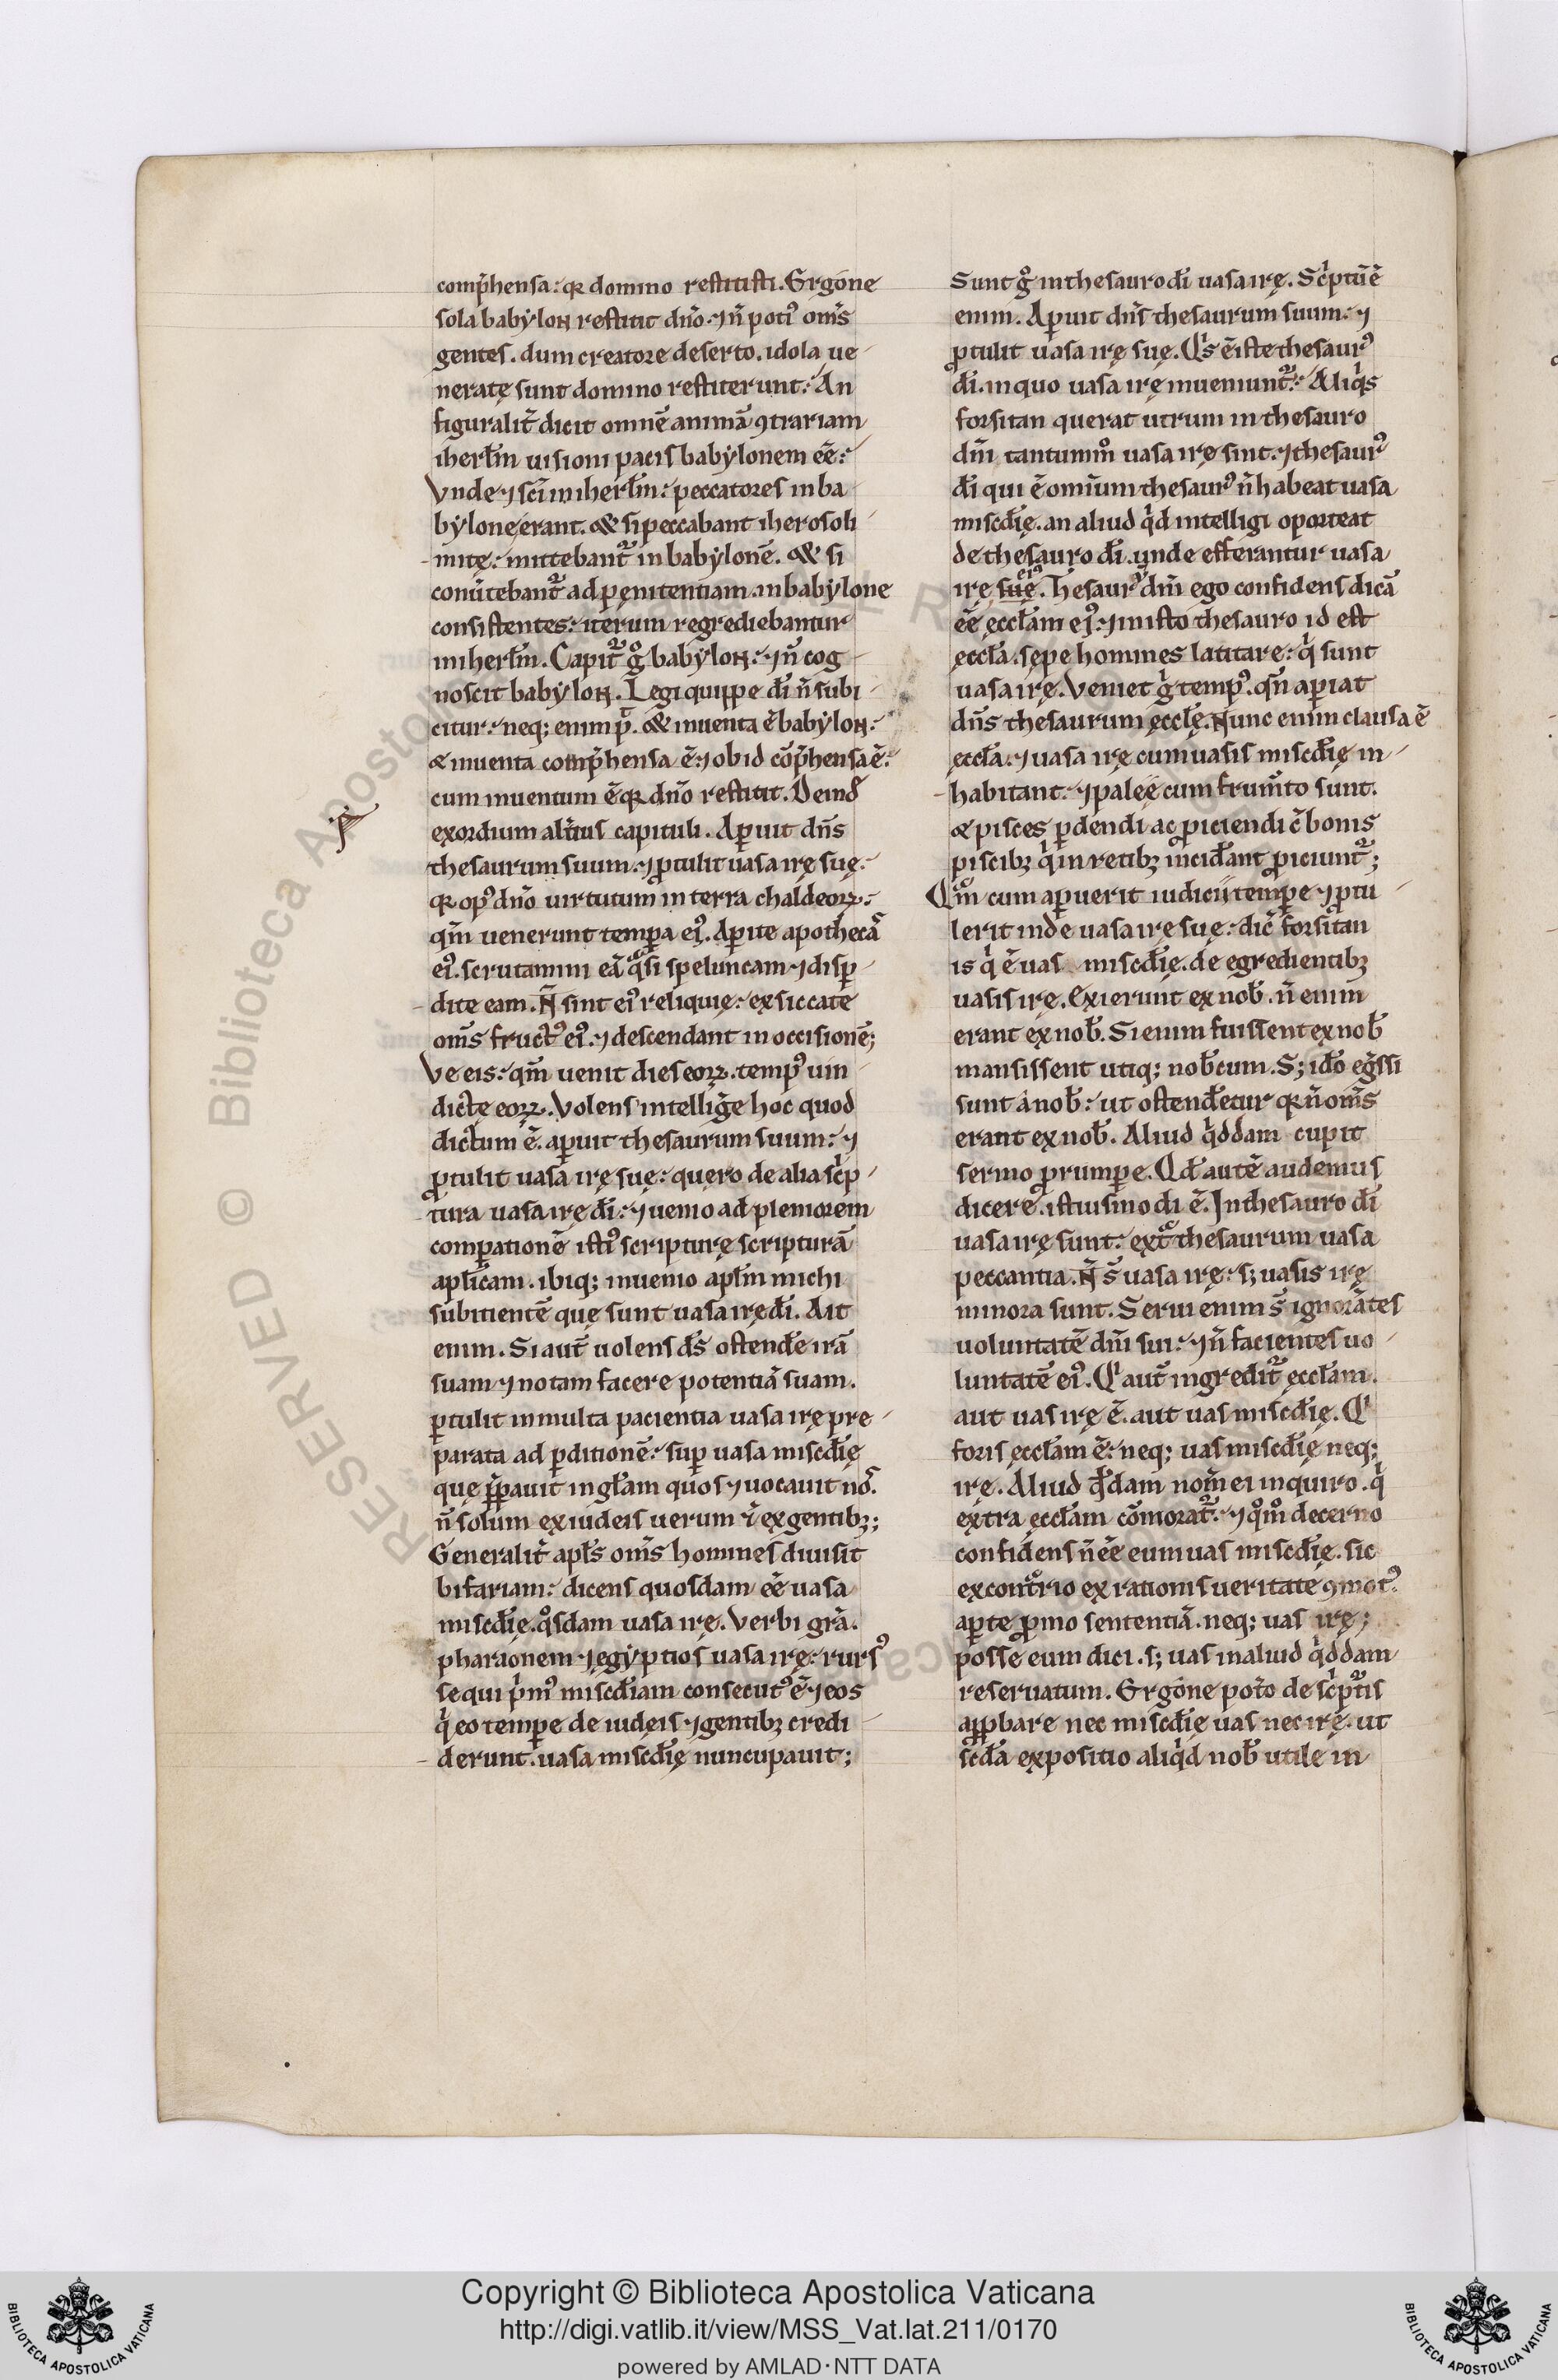 comp̄hensa: qꝛ domino restitisti. Ergone
sola babylon restitit dn̄o. ⁊ n̄ potiꝰ om̄s
gentes. dum creatore deserto. idola ue
neratę sunt domino restiterunt: An
figuralit̄ dicit omnē animā ꝯtrariam
iherl̄m uisioni pacis babylonem eē:
Vnde ⁊ sc̄i in iherl̄m: peccatores in ba
bylone erant. & si peccabant iherosoli
mitę: mittebant᷑ in babylonē. & si
conūtebant᷑ ad pęnitentiam in babylone
consistentes: iterum regrediebantur
in iherl̄m. Capit᷑ gͦ babylon: ⁊ n̄ cog
noscit babylon. Legi quippe dī n̄ subi
citur: neq; enim p̄. & inuenta ē babylon:
& inuenta comp̄hensa ē: ⁊ ob id cōp̄hensa ē:
cum inuentum ē qꝛ dn̄o restitit. Deind̄
exordium alt̄ius capituli. Aꝑuit dn̄s
thesaurum suum: ⁊ ꝓtulit uasa irę suę:
qꝛ opꝰ dn̄o uirtutum in terra chaldeoꝝ:
qm̄ uenerunt tempa eiꝰ. Aꝑite apothecā
eiꝰ. scrutamini eā qͣsi speluncam ⁊ disꝑ
dite eam. N̄ sint eiꝰ reliquię: exsiccate
om̄s fructꝰ eiꝰ. ⁊ descendant in occisionē;
Ve eis: qm̄ uenit dies eoꝝ. tempꝰ uin
dictę eoꝝ. Volens intelliḡe hoc quod
dictum ē. aꝑuit thesaurum suum: ⁊
ꝓtulit uasa irę suę: quero de alia sc̄p
tura uasa irę dī: ⁊ uenio ad pleniorem
comꝑationē istiꝰ scripturę scripturā
apl̄icam. ibiq; inuenio apl̄m michi
subicientē quę sunt uasa irę dī. Ait
enim. Si aut̄ uolens d̄s ostend̄e irā
suam ⁊ notam facere potentiā suam.
ꝑtulit in multa pacientia uasa irę pre
parata ad ꝑditionē: suꝑ uasa miscd̄ię
que p̄ꝑauit in gl̄am quos ⁊ uocauit nos̄.
n̄ solum ex iudeis uerum & ex gentibꝫ;
Generalit̄ apl̄s om̄s homines diuisit
bifariam: dicens quosdam eē uasa
miscd̄ię. qͦsdam uasa irę. Verbi grā.
pharaonem ⁊ egyptios uasa irę: rursꝰ
se qui pͥmꝰ miscd̄iam consecutꝰ ē ⁊ eos
qͥ eo tempe de iudeis ⁊ gentibꝫ credi
derunt. uasa miscd̄ię nuncupauit;
Sunt gͦ in thesauro dī uasa irę. Scͥptū ē
enim. Aꝑuit dn̄s thesaurum suum: ⁊
ꝓtulit uasa irę suę. Qͥs ē iste thesaurꝰ
dī. in quo uasa irę inueniunt᷑: Aliqͥs
forsitan querat utrum in thesauro
dn̄i tantummͦ uasa irę sint. ⁊ thesaurꝰ
dī qui ē omnium thesaurꝰ n̄ habeat uasa
miscd̄ię. an aliud qͥd intelligi oporteat
de thesauro dī. unde efferantur uasa
irę suę eiꝰ. Thesaurꝰ dn̄i ego confidens dicā
eē ęccl̄am eiꝰ: ⁊ in isto thesauro id est
ęccl̄a. sępe homines latitare: qͥ sunt
uasa irę. Veniet gͦ tempꝰ. qn̄ aꝑiat
dn̄s thesaurum ęccl̄ę. Nunc enim clausa ē
ęccl̄a. ⁊ uasa irę cum uasis miscd̄ię in
habitant. ⁊ paleę cum frumͭo sunt.
& pisces ꝑdendi ac ꝓiciendi c̄ bonis
piscibꝫ qͥ in retibꝫ incid̄ant ꝓiciunt᷑;
Qm̄ cum aꝑuerit iudicii tempe ⁊ ꝓtu
lerit inde uasa irę suę: dic̄ forsitan
is qͥ ē uas miscd̄ię. de egredientibꝫ
uasis irę. Exierunt ex nob̄. n̄ enim
erant ex nob̄. Si enim fuissent ex nob̄
mansissent utiq; nob̄cum. S; id̄o eḡssi
sunt a nob̄: ut ostend̄etur qꝛ n̄ om̄s
erant ex nob̄. Aliud qͥddam cupit
sermo ꝓrumpe. Qd̄ autē audemus
dicere. istiusmodi ē. In thesauro dī
uasa irę sunt. extͣ thesaurum uasa
peccantia. N̄ s̄ uasa irę: s; uasis irę
minora sunt. Serui enim s̄ ignorātes
uoluntatē dn̄i sui: ⁊ n̄ facientes uo
luntatē eiꝰ. Qͥ aut̄ ingredit᷑ ęccl̄am.
aut uas irę ē. aut uas miscd̄ię. Qͥ
foris ęccl̄am ē: neq; uas miscd̄ię neq;
irę. Aliud qͦddam nom̄ ei inquiro. qͥ
extra ęccl̄am cōmorat᷑: ⁊ qͦmͦ decerno
confidens n̄ eē eum uas miscd̄ię. sic
ex contͣrio ex rationis ueritate ꝯmotꝰ
aꝑte ꝓmo sententiā. neq; uas irę;
posse eum dici. s; uas in aliud qͥddam
reseruatum. Ergone potͦo de scͥpt᷑is
apꝓbare nec miscd̄ię uas nec irę. ut
scd̄a expositio aliqͥd nob̄ utile in
RESERVED © Biblioteca Apostolica
Copyright © Biblioteca Apostolica Vaticana
http://digi.vatlib.it/view/MSS_Vat.lat.211/0170
powered by AMLAD·NTT DATA
BIBLIOTECA APOSTOLICA VATICANA
BIBLIOTECA APOSTOLICA VATICANA